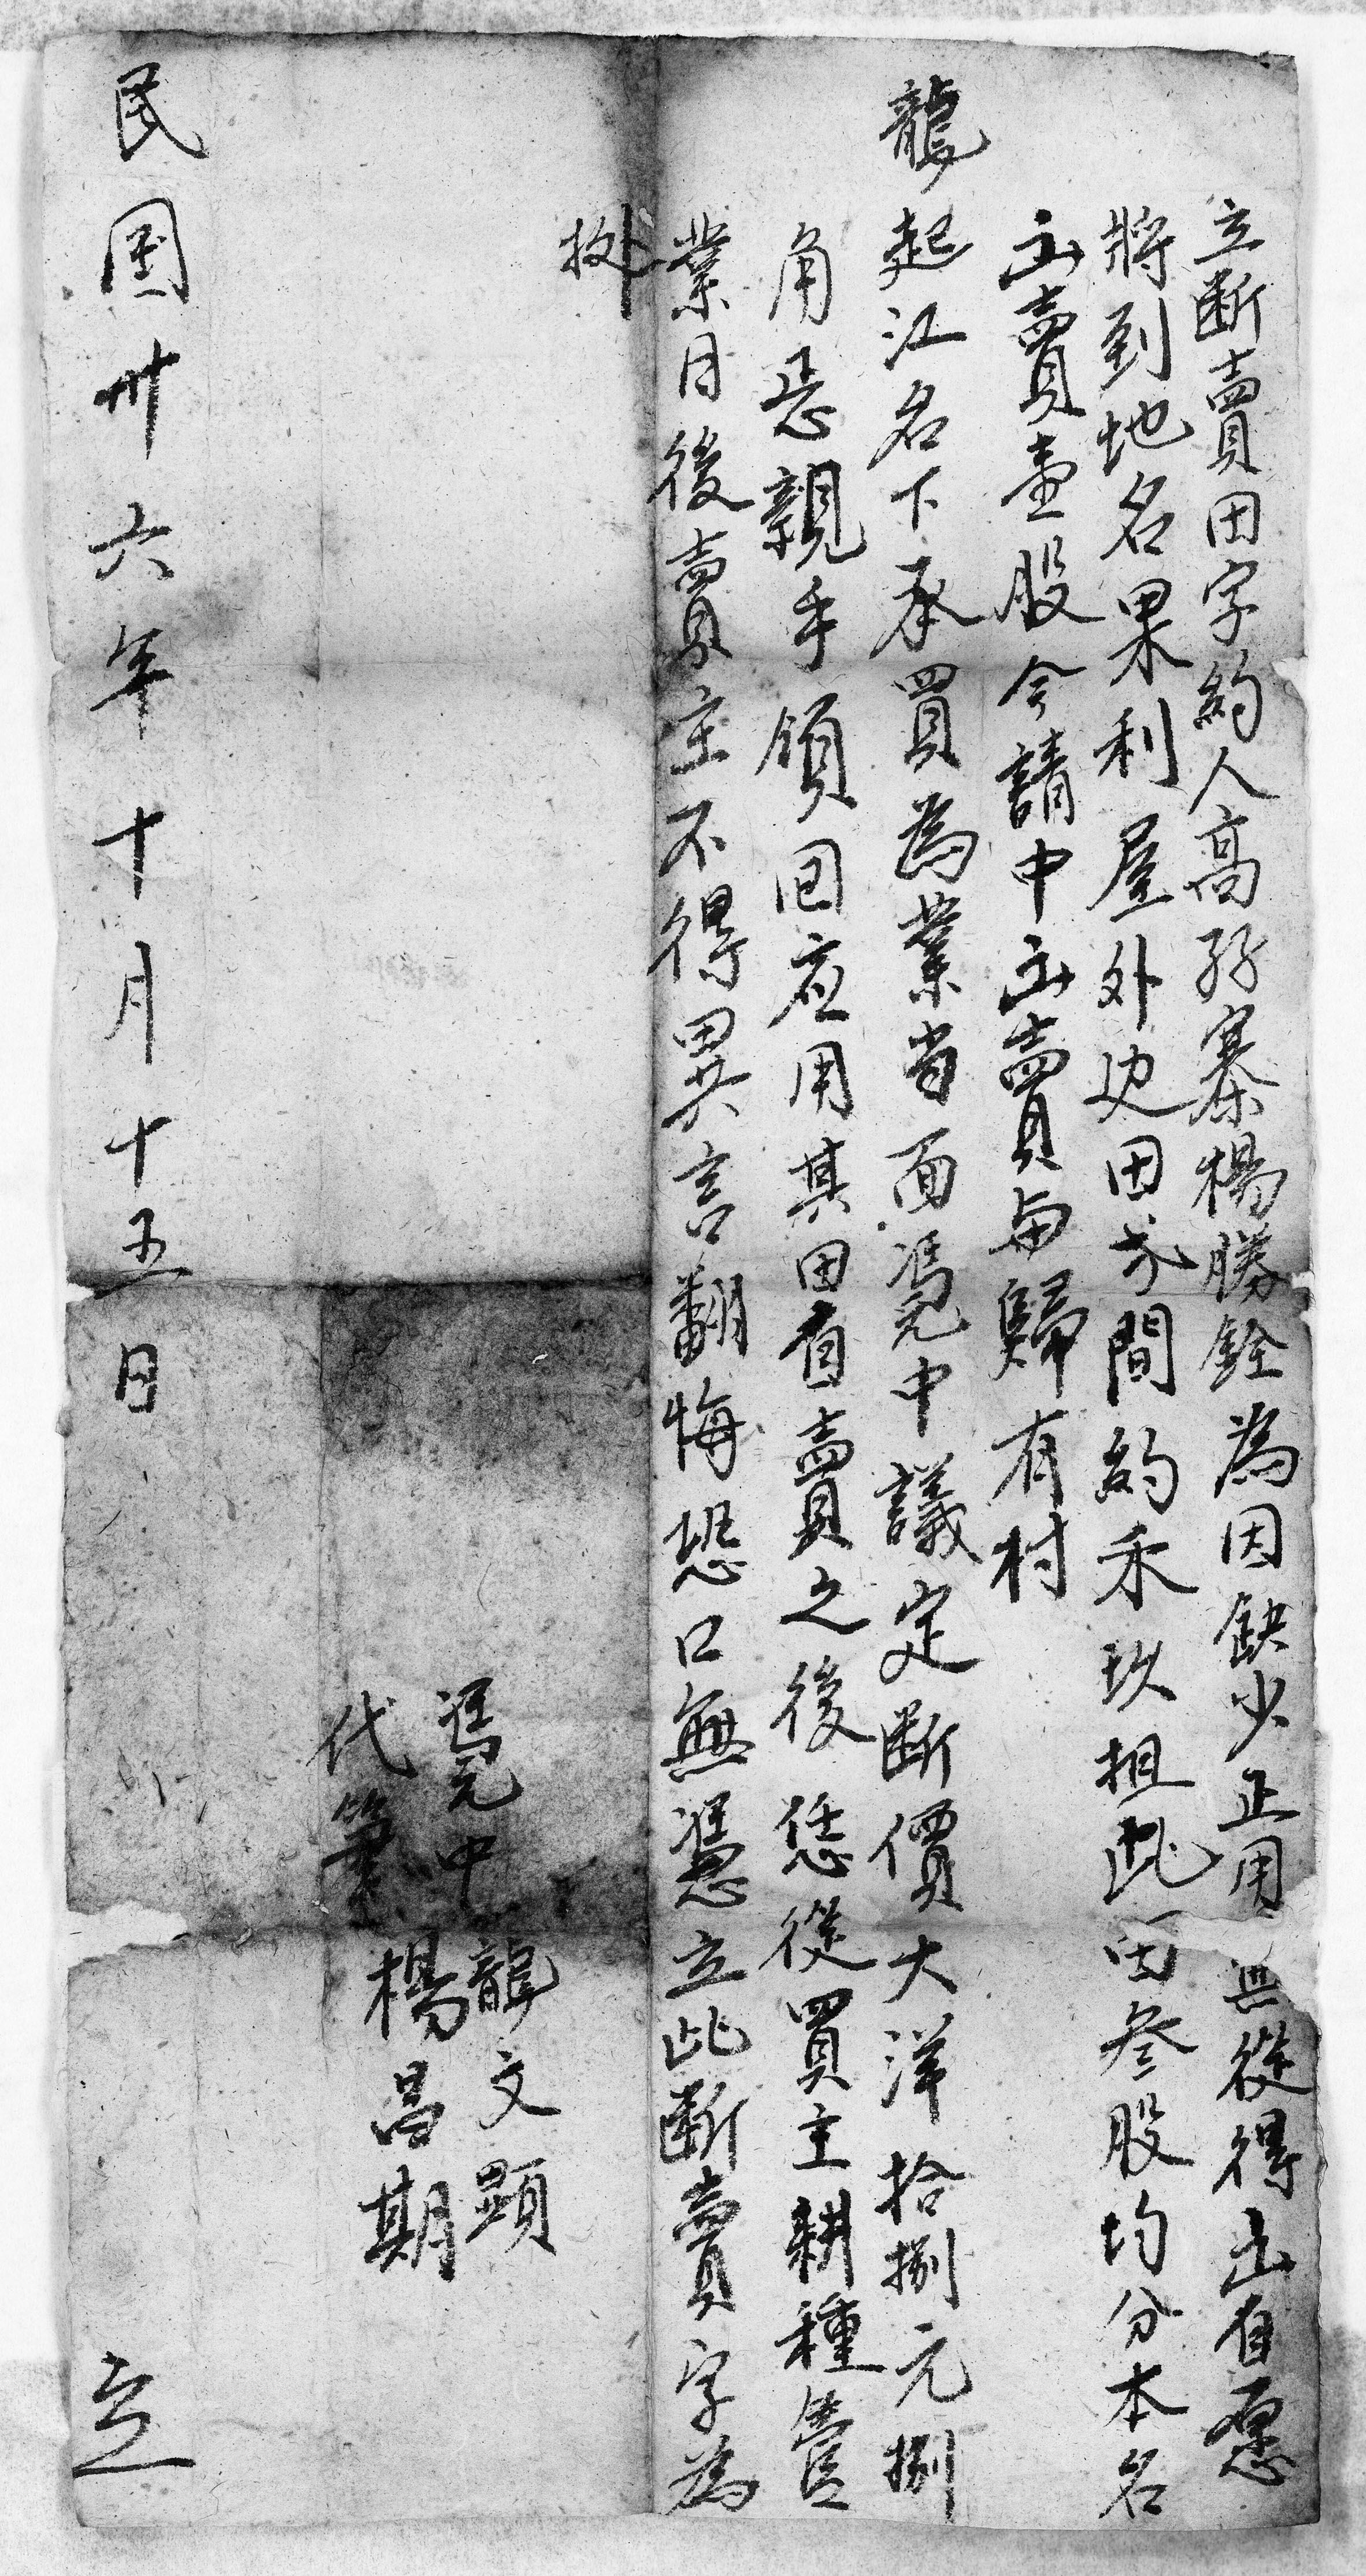 立断賣田字約人高孖寨楊勝銓為因缺少正用無從得出自愿
將到地名果利屋外边田弍間約禾玖担此田叁股均分本名
出賣壹股今請中出賣与歸有村
龍起江名下承買為業当面憑中議定断價大洋拾捌元捌
角忢親手領回应用其田自賣之後恁從買主耕種管
業日後賣主不得異言翻悔恐口無憑立此断賣字為
拠
憑中 龍文顕
代筆 楊昌期
民国卅六年十月十五日 立